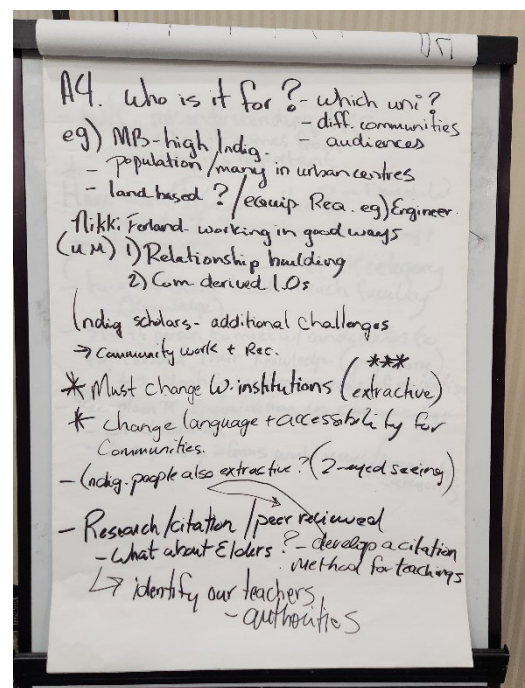 A4. Who is it for? - which uni?
- diff. communities
- audiences
eg) MB-high Indig.
- population/many in urban centres
- land-based? / equip Req. eg) Engineer.
Nikki Ferland - working in good ways
(UM) 1) Relationship building
2) Com derived LOs
Indig scholars - additional challenges
→ Community work + Rec.
* Must change W. institutions (extractive)
***
* change language + accessibility for
Communities.
- Indig. people also extractive? (2-eyed seeing)
- Research/citation/peer reviewed
- What about Elders? - develop a citation
method for teachings
↳ identify our teachers
- authorities